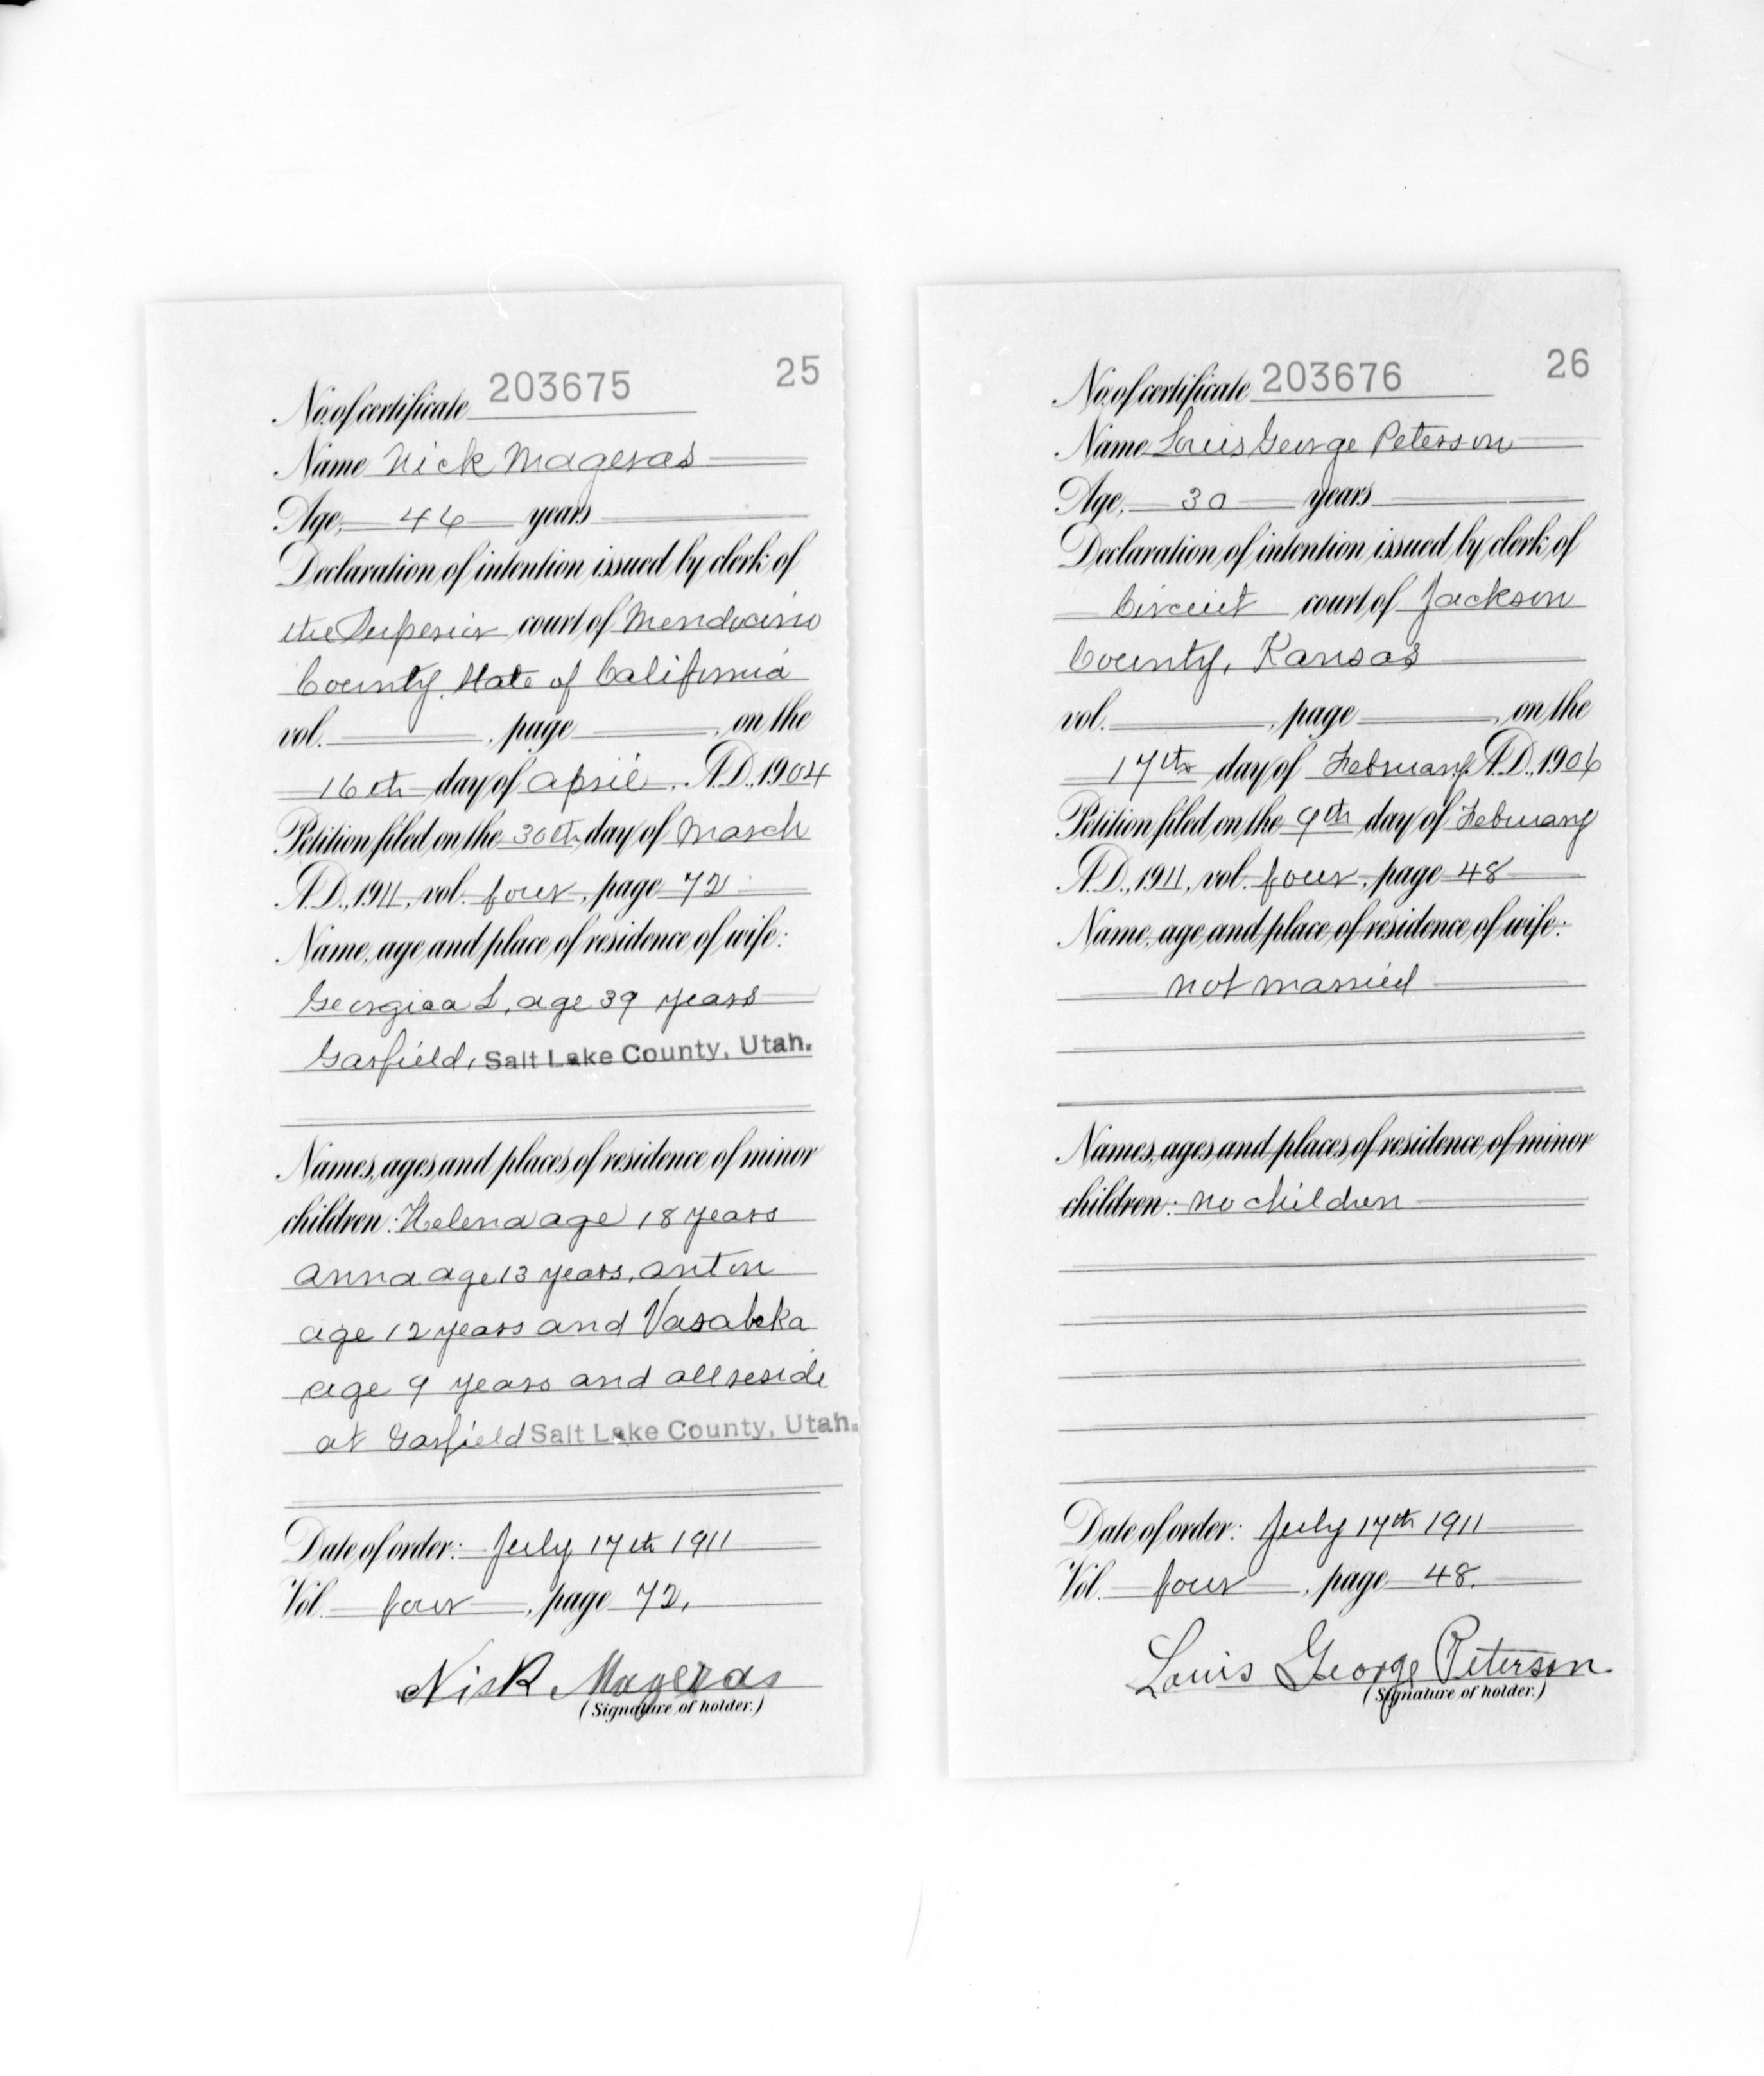 25
No. of certificate 203675
Name Nick Mageras
Age, 46 years
Declaration of intention issued by clerk of
the Superior court of Mendocino
County, State of California
vol. , page , on the
16th day of April, A.D., 1904
Petition filed on the 30th day of March
A.D., 1911, vol. four, page 72
Name, age and place of residence of wife:
Georgiaa L, age 39 years
Garfield, Salt Lake County, Utah.
Names, ages and places of residence of minor
children: Helena age 18 years
Anna age 13 years, Anton
age 12 years and Vasaleka
age 9 years and all reside
at Garfield Salt Lake County, Utah.
Date of order: July 17th 1911
Vol. four, page 72.
Nick Mageras
(Signature of holder.)
26
No. of certificate 203676
Name Louis George Peterson
Age, 30 years
Declaration of intention issued by clerk of
Circuit court of Jackson
County, Kansas
vol. , page , on the
17th day of February A.D., 1906
Petition filed on the 9th day of February
A.D., 1911, vol. four, page 48
Name, age and place of residence of wife:
not married
Names, ages and places of residence of minor
children: no children
Date of order: July 17th 1911
Vol. four, page 48.
Louis George Peterson
(Signature of holder.)